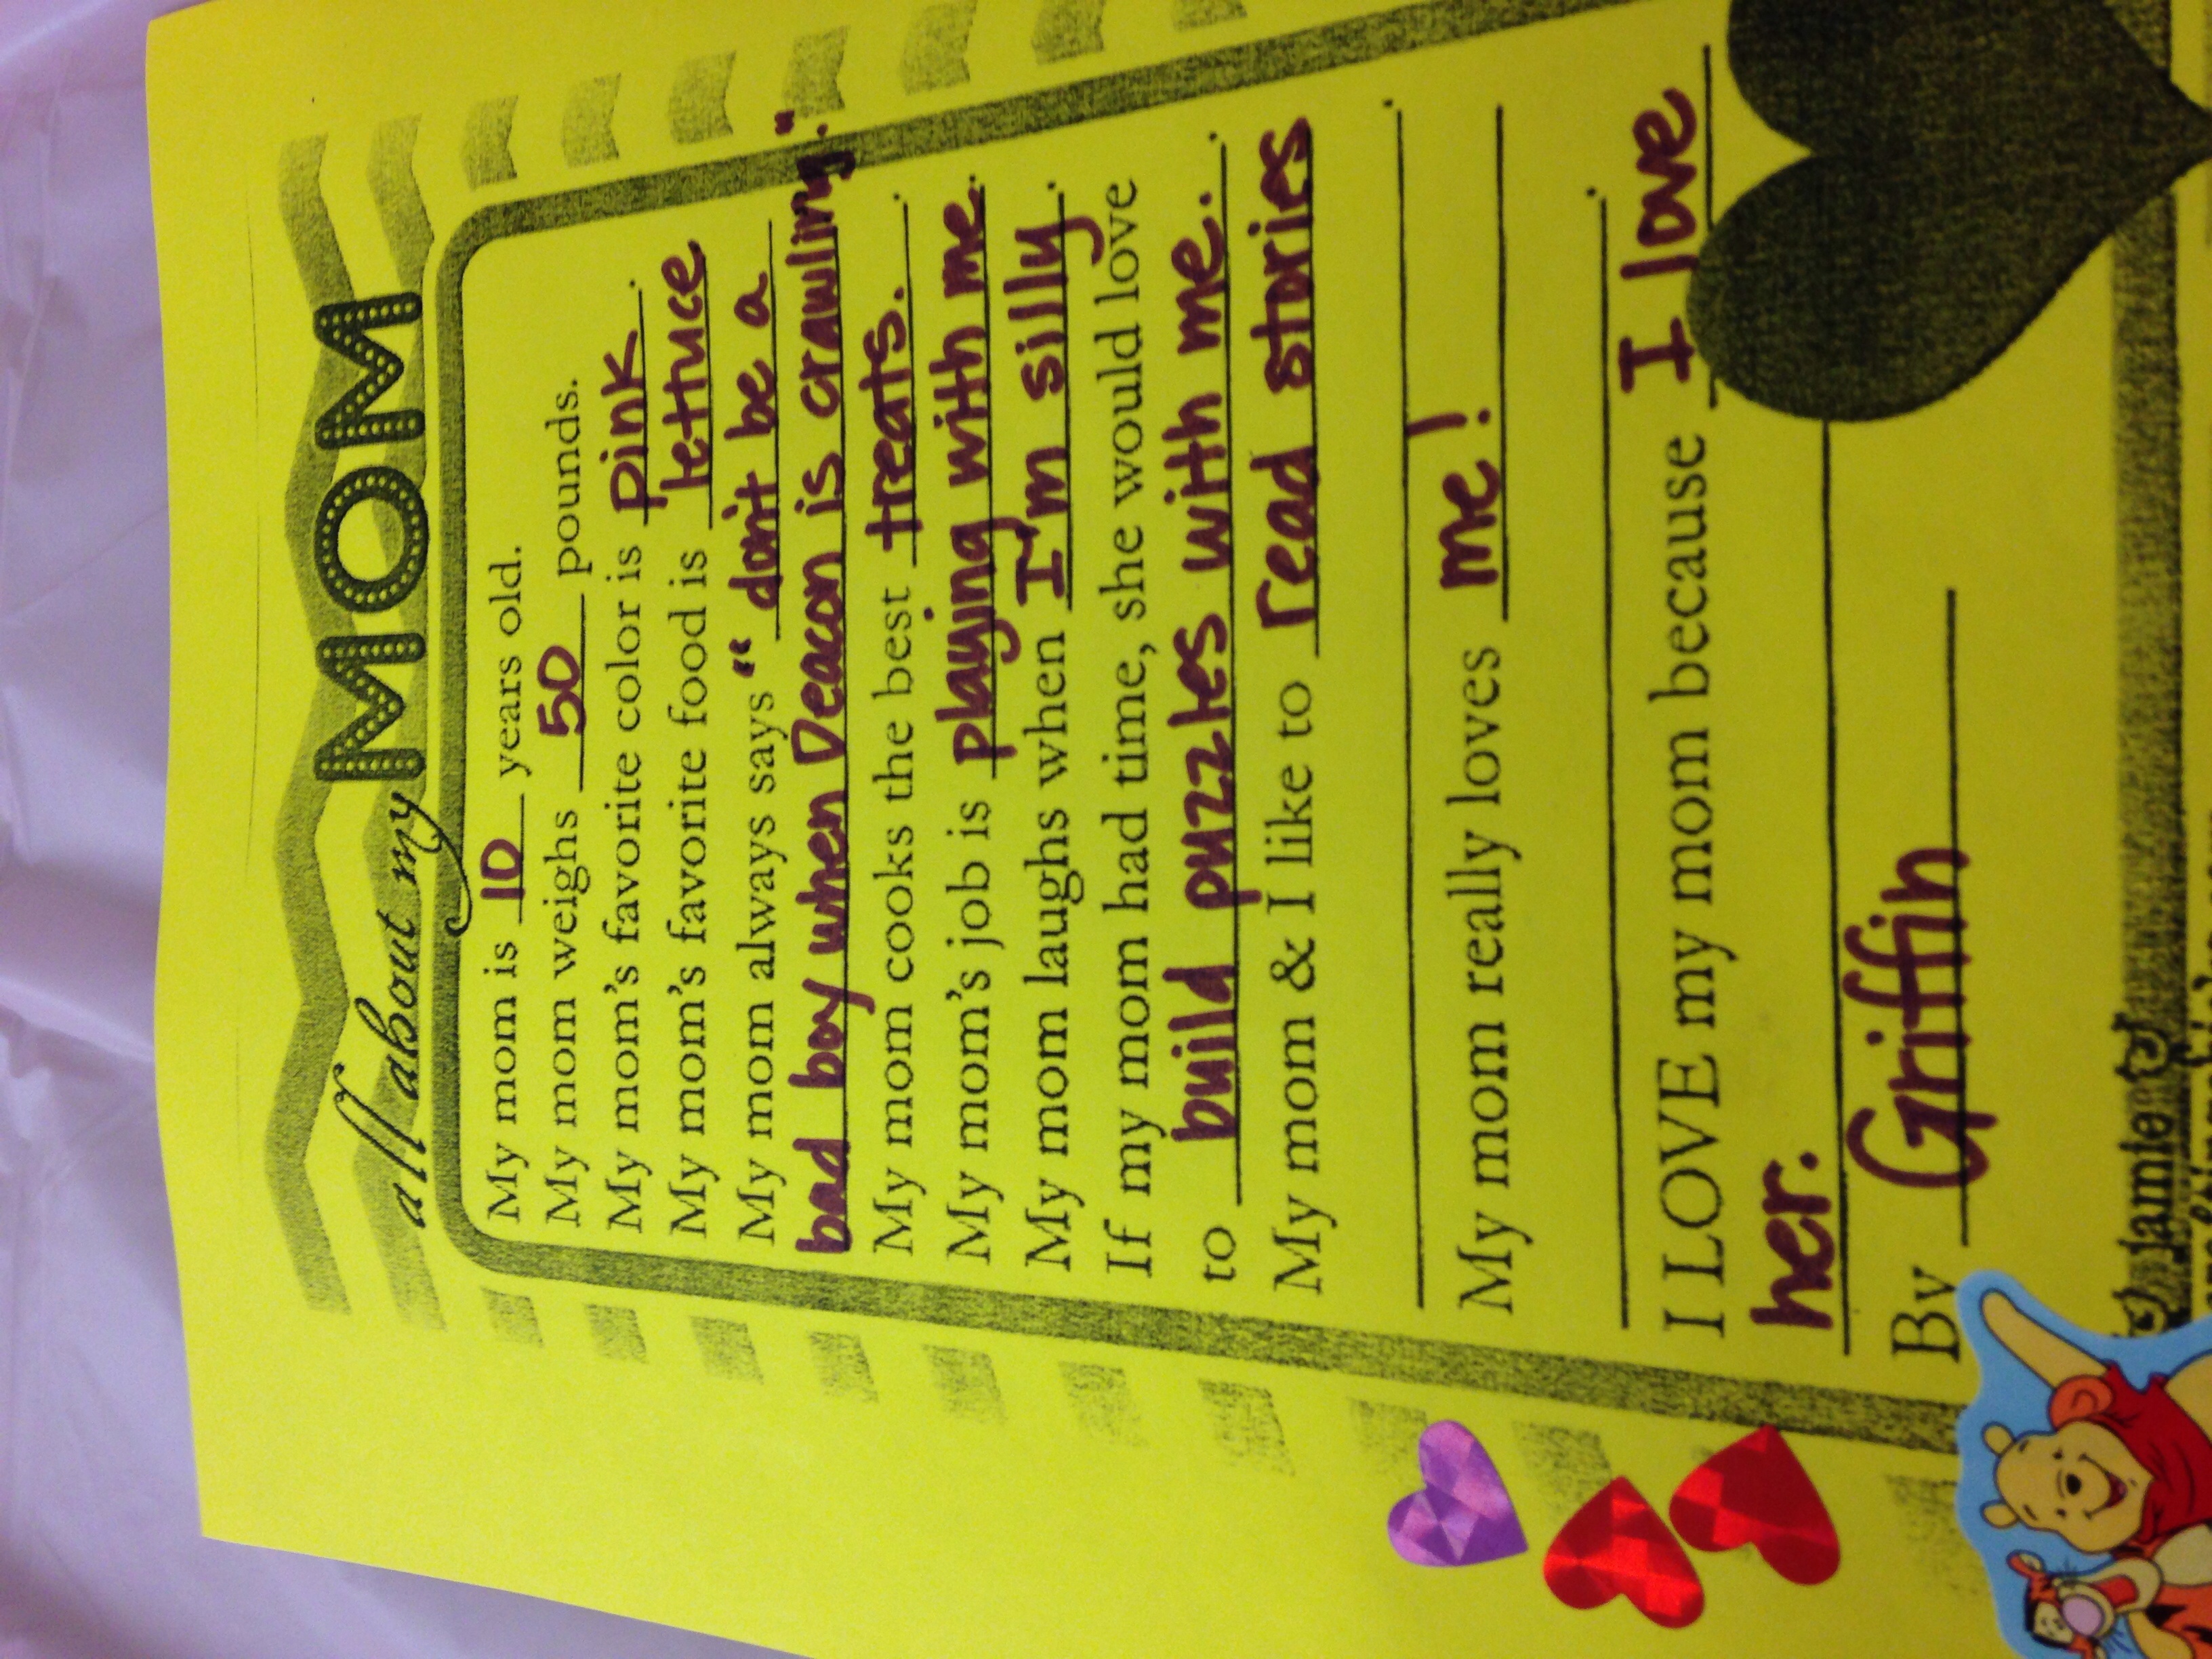 all about my MOM
My mom is 10 years old.
My mom weighs 50 pounds.
My mom's favorite color is pink.
My mom's favorite food is lettuce
My mom always says "don't be a
bad boy when Deacon is crawling."
My mom cooks the best treats.
My mom's job is playing with me.
My mom laughs when I'm silly.
If my mom had time, she would love
to build puzzles with me.
My mom & I like to read stories
My mom really loves me!
I LOVE my mom because I love
her.
By Griffin
jamie